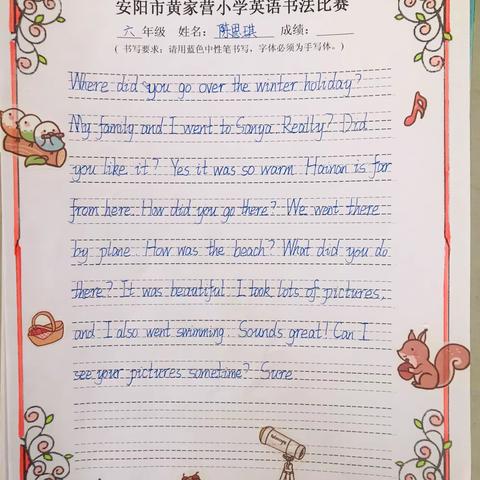 安阳市黄家营小学英语书法比赛
六 年级 姓名: 陈思琪 成绩:
( 书写要求: 请用蓝色中性笔书写, 字体必须为手写体。)
Where did you go over the winter holiday?
My family and I went to Sanya. Really? Did
you like it? Yes it was so warm. Hainan is far
from here. How did you go there? We went there
by plane. How was the beach? What did you do
there? It was beautiful. I took lots of pictures,
and I also went swimming. Sounds great! Can I
see your pictures sometime? Sure